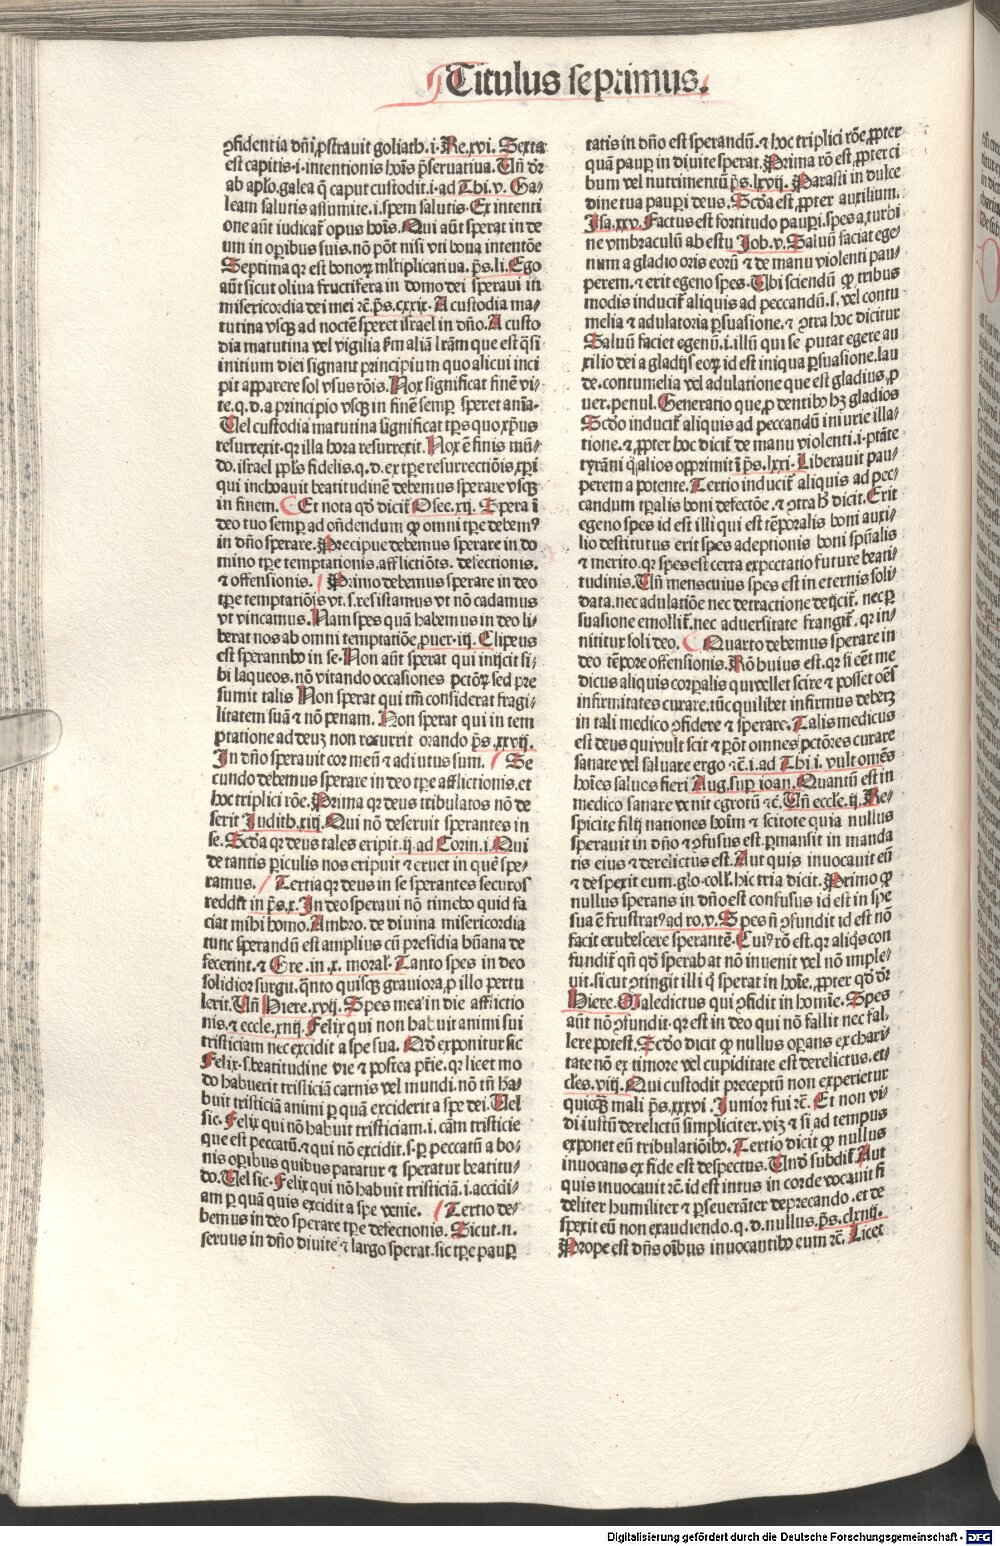 Titulus septimus.
ꝯfidentia dñi ꝓstrauit goliath. i. Re. xvi. Sexta
est capitis .i. intentionis hoĩs p̃seruatiua. Uñ dr̃
ab aplo. galea q̃ caput custodit. i. ad Thi. v. Ga-
leam salutis assumite .i. spem salutis. Ex intenti
one aũt iudicat̃ opus hoĩs. Qui aũt sperat in de
um in oꝑibus suis. nõ põt nisi vti bona intentõe
Septima qꝛ est bonoꝝ mĩtiplicatiua. p̃s. li. Ego
aũt sicut oliua fructifera in domo dei speraui in
misericordia dei mei ⁊c̃. p̃s. cxxix. A custodia ma-
tutina vsqꝫ ad noctẽ speret israel in dño. A custo
dia matutina vel vigilia ẜm aliã lr̃am que est q̃si
initium diei signant̃ principium quo alicui inci
pit apparere sol vsus rõis. Nox significat finẽ vi-
te. q. d. a principio vsqꝫ in finẽ semꝑ speret aĩa.
Uel custodia matutina significat tp̃s quo xp̃us
resurrexit. qꝛ illa hora resurrexit. Nox ẽ finis mũ-
do. israel ppl̃s fidelis. q. d. ex tp̃e resurrectiõis xp̃i
qui inchoauit beatitudinẽ debemus sperare vsqꝫ
in finem. Et nota qđ dicit̃ Osee. xij. Spera ĩ
deo tuo semꝑ ad oñdendum ꝙ omni tp̃e debemꝰ
in dño sperare. Precipue debemus sperare in do
mino tp̃e temptationis. afflictiõis. defectionis.
⁊ offensionis. Primo debemus sperare in deo
tp̃e temptatiõis vt .s. resistamus vt nõ cadamus
vt vincamus. Nam spes quã habemus in deo li-
berat nos ab omni temptatiõe. ꝓuer. iij. Clipeus
est sperantibꝰ in se. Non aũt sperat qui inijcit si-
bi laqueos. nõ vitando occasiones pctõꝝ sed pre
sumit talis Non sperat qui tm̃ considerat fragi-
litatem suã ⁊ nõ penam. Non sperat qui in tem
ptatione ad deuꝫ non recurrit orando p̃s. xxvij.
In dño sperauit cor meũ ⁊ adiutus sum. Se
cundo debemus sperare in deo tp̃e afflictionis. et
hoc triplici rõe. Prima qꝛ deus tribulatos nõ de
serit Judith. xiij. Qui nõ deseruit sperantes in
se. Scđa qꝛ deus tales eripit. ij. ad Corin. i. Qui
de tantis ꝑiculis nos eripuit ⁊ eruet in quẽ spe-
ramus. Tertia qꝛ deus in se sperantes securos
reddit in p̃s. x. In deo speraui nõ timebo quid fa
ciat mihi homo. Ambro. de diuina misericordia
tunc sperandũ est amplius cũ presidia hũana de
fecerint. ⁊ Gre. in. x. moral. Tanto spes in deo
solidior surgit. q̃nto quisqꝫ grauiora. ꝓ illo pertu
lerit. Uñ Hiere. xvij. Spes mea in die afflictio
nis. ⁊ eccle. xiiij. Felix qui non habuit animi sui
tristiciam nec excidit a spe sua. Qđ exponitur sic
Felix .s. beatitudine vie ⁊ postea pr̃ie. qꝛ licet mo
do habuerit tristiciã carnis vel mundi. nõ tñ ha-
buit tristiciã animi ꝑ quã exciderit a spe dei. Uel
sic. Felix qui nõ habuit tristiciam .i. cãm tristicie
que est peccatũ. ⁊ qui nõ excidit .s. ꝑ peccatũ a bo-
nis oꝑibus quibus paratur ⁊ speratur beatitu-
do. Uel sic. Felix qui nõ habuit tristiciã .i. accidi-
am per quã quis excidit a spe venie. Tertio de-
bemus in deo sperare tp̃e defectionis. Sicut .n.
seruus in dño diuite ⁊ largo sperat. sic tp̃e pauꝑ
tatis in dño est sperandũ. ⁊ hoc triplici rõe. ꝓpter
quã pauꝑ in diuite sperat. Prima rõ est. ꝓpter ci
bum vel nutrimentũ p̃s. lxvij. Parasti in dulce
dine tua pauperi deus. Scđa est. ꝓpter auxilium.
Isa. xxv. Factus est fortitudo pauꝑi. spes a turbi
ne vmbraculũ ab estu Job. v. Saluũ faciat ege-
num a gladio oris eorũ ⁊ de manu violenti pau-
perem. ⁊ erit egeno spes. Ubi sciendũ ꝙ tribus
modis inducit̃ aliquis ad peccandũ .s. vel contu
melia ⁊ adulatoria ꝑsuasione. ⁊ ꝯtra hoc dicitur
Saluũ faciet egenũ .i. illũ qui se putat egere au
xilio dei a gladijs eoꝝ id est iniqua ꝑsuasione. lau
de. contumelia vel adulatione que est gladius. ꝓ
uer. penul. Generatio que ꝓ dentibꝰ hꝫ gladios
Scđo inducit̃ aliquis ad peccandũ iniurie illa-
tione. ⁊ ꝓpter hoc dicit̃ de manu violenti .i. ptãte
tyrãni q̃ alios opprimit ĩ p̃s. lxxi. Liberauit pau-
perem a potente. Tertio inducit̃ aliquis ad pec-
candum tp̃alis boni defectõe. ⁊ ꝯtra hͦ dicit. Erit
egeno spes id est illi qui est tẽporalis boni auxi-
lio destitutus erit spes adeptionis boni spũalis
⁊ merito. qꝛ spes est certa expectatio future beati-
tudinis. Uñ mens cuius spes est in eternis soli-
data. nec adulatiõe nec detractione deijcit̃. nec ꝑ
suasione emollit̃. nec aduersitate frangit̃. qꝛ in-
nititur soli deo. Quarto debemus sperare in
deo tẽpore offensionis. Rõ huius est. qꝛ si eẽt me
dicus aliquis corꝑalis qui vellet scire ⁊ posset oẽs
infirmitates curare. tũc quilibet infirmus deberꝫ
in tali medico ꝯfidere ⁊ sperare. Talis medicus
est deus qui vult scit ⁊ põt omnes pctõres curare
sanare vel saluare ergo ⁊c̃. i. ad Thi. i. vult omẽs
hoĩes saluos fieri Aug. suꝑ ioan. Quantũ est in
medico sanare venit egrotũ ⁊c̃. Uñ eccle. ij. Re-
spicite filij nationes hoĩm ⁊ scitote quia nullus
sperauit in dño ⁊ ꝯfusus est. ꝑmansit in manda
tis eius ⁊ derelictus est. Aut quis inuocauit eũ
⁊ despexit eum. glo. coll̃. hic tria dicit. Primo ꝙ
nullus sperans in dño est confusus id est in spe
sua ẽ frustratꝰ ad ro. v. Spes ñ ꝯfundit id est nõ
facit erubescere sperantẽ. Cuiꝰ rõ est. qꝛ aliq̃s con
fundit̃ qñ qđ sperabat nõ inuenit vel nõ imple-
uit. sicut ꝯtingit illi q̃ sperat in hoĩe. ꝓpter qđ dr̃
Hiere. Maledictus qui ꝯfidit in homĩe. Spes
aũt nõ ꝯfundit. qꝛ est in deo qui nõ fallit nec fal-
lere potest. Scđo dicit ꝙ nullus oꝑans ex chari-
tate nõ ex timore vel cupiditate est derelictus. ec-
cles. viij. Qui custodit preceptũ non experietur
quicqꝫ mali p̃s. xxxvi. Junior fui ⁊c̃. Et non vi-
di iustũ derelictũ simpliciter. viꝫ ⁊ si ad tempus
exponet eũ tribulatiõibꝰ. Tertio dicit ꝙ nullus
inuocans ex fide est despectus. Unđ subdit̃ Aut
quis inuocauit ⁊c̃. id est intus in corde vocauit fi
deliter humiliter ⁊ ꝑseuerãter deprecando. et de
spexit eũ non exaudiendo. q. d. nullus. p̃s. clxiiij.
Prope est dñs oĩbus inuocantibꝰ eum ⁊c̃. Licet
Digitalisierung gefördert durch die Deutsche Forschungsgemeinschaft - DFG